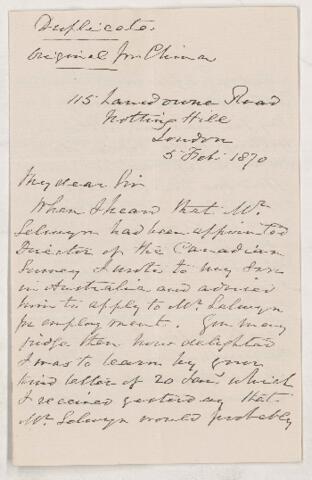 Duplicate.
Original for China
115 Lansdowne Road
Notting Hill
London
5 Feb: 1870
My dear Sir
When I heard that Mr.
Selwyn had been appointed
Director of the Canadian
Survey I wrote to my Son
in Australia and advised
him to apply to Mr. Selwyn
for employment. You may
judge then how delighted
I was to learn by your
kind letter of 20 Jany. which
I received yesterday that
Mr. Selwyn would probably